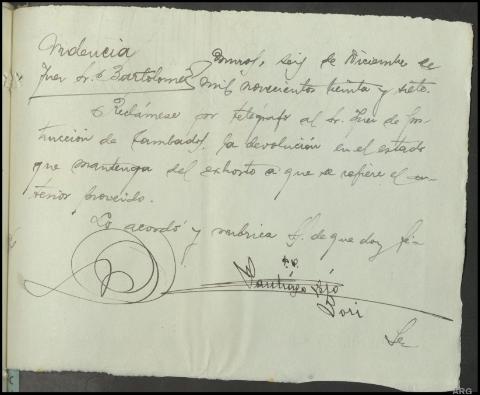 Providencia
Juez Sr. Bartolomé
seis de Diciembre de
mil novecientos treinta y siete.
Reclámese por telégrafo al Sr. Juez de Ins-
trucción de Cambados, la devolución en el estado
que mantenga del exhorto a que se refiere el an-
terior proveido.
Lo acordó y rubrica S. de que doy fé-
P.D.
Santiago
ARG